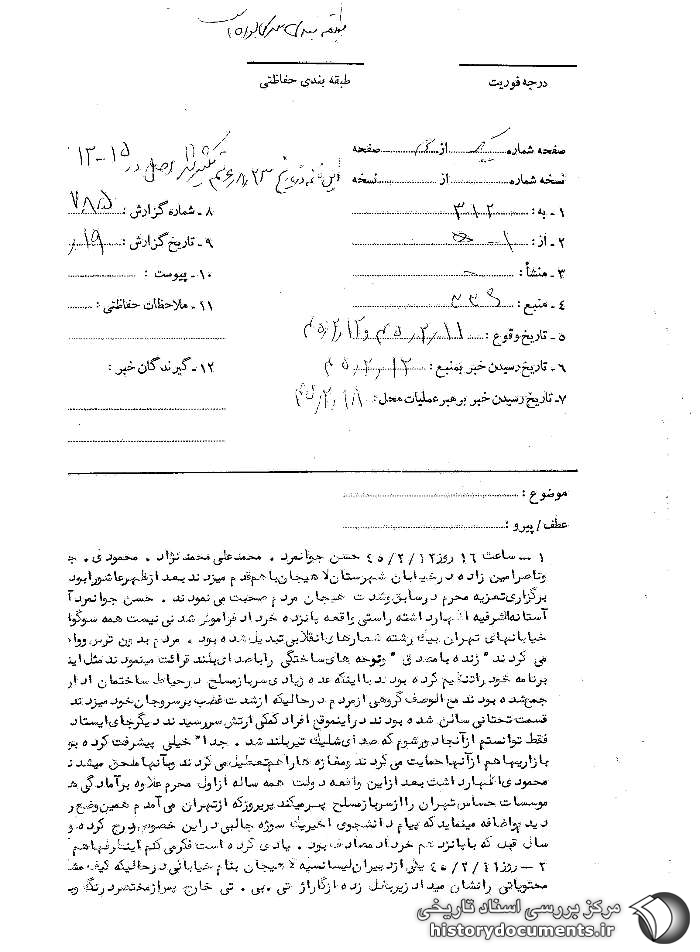 طبقه بندی
درجه فوریت
طبقه بندی حفاظتی
صفحه شماره از صفحه
نسخه شماره از نسخه
۱ـ به : ۳۱۲
۲ـ از :
۳ـ منشأ :
۴ـ منبع :
۵ـ تاریخ وقوع : ۴۵٫۲٫۱۱ و ۴۵٫۲٫۱۲
۶ـ تاریخ رسیدن خبر بمنبع : ۴۵٫۲٫۱۲
۷ـ تاریخ رسیدن خبر برهبر عملیات محل : ۴۵٫۲٫۱۸
۱۵-۱۲
۸ـ شماره گزارش : ۷۸۵
۹ـ تاریخ گزارش : ۱۹
۱۰ـ پیوست :
۱۱ـ ملاحظات حفاظتی :
۱۲ـ گیرندگان خبر :
موضوع :
عطف / پیرو :
۱ ـ ساعت ۱۶ روز ۴۵/۲/۱۲ حسن جوانمرد ٠ محمدعلی محمدنژاد ٠ محمودی ٠
وناصرامین زاده درخیابان شهرستان لاهیجان باهم قدم میزدند بعدازظهرعاشورابود
برگزاری تعزیه محرم درسابق وشدت هیجان مردم صحبت می نمودند ٠ حسن جوانمرد
آستانه اشرفیه اظهارداشته راستی واقعه پانزده خرداد فراموش شدنی نیست همه
خیابانهای تهران بیک رشته شعارهای انقلابی تبدیل شده بود ٠ مردم بدون ترس
می کردند " زنده بادمصدق " ونوحه های ساختگی راباصدای بلند قرائت مینمودند مثل
برنامه خودراتنظیم کرده بودند بااینکه عده زیادی سربازمسلح درحیاط ساختمان
جمع شده بودند مع الوصف گروهی ازمردم درحالیکه ازشدت غضب برسروجان خود میزدند
قسمت تحتانی سالن شده بودند دراینموقع افراد کمکی ارتش سررسیدند دیگرجای
فقط توانستم ازآنجادورشوم که صدای شلیک تیربلند شد ٠ جدا" خیلی پیشرفت کرده
بازاریهاهم ازآنهاحمایت می کردند ومغازه هاراهم تعطیل می کردند وبآنهاملحق میشدند
محمودی اظهارداشت بعدازاین واقعه دولت همه ساله ازاول محرم علاوه برآمادگی
موسسات حساس تهران راازسربازمسلح پرمیکند پریروزکه ازتهران می آمدم همین وضع
دیدم واضافه مینماید که پیام دانشجوی اخیریک سوژه جالبی دراین خصوص درج کرده
سال قبل که باپانزدهم خرداد مصادف بود ٠ یادی کرده است فکرمی کنم اینطرفهاهم
۲ ـ روز ۴۵/۲/۱۱ یکی ازدبیران لیسانسیه لاهیجان بنام خیابانی درحالیکه کیف
محتویاتی رانشان میداد زیربغل زده ازگاراژ تی ٠ بی ٠ تی خارج پس ازمختصردرنگ
مرکز بررسی اسناد تاریخی
historydocuments.ir